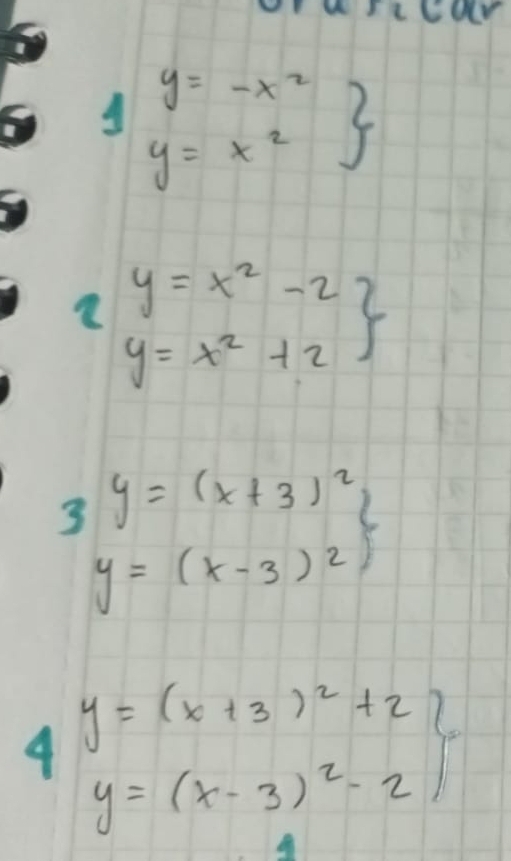 Graficar
1 y = -x² }
y = x²
2 y = x² - 2 }
y = x² + 2
3 y = (x + 3)² }
y = (x - 3)²
4 y = (x + 3)² + 2 }
y = (x - 3)² - 2
1